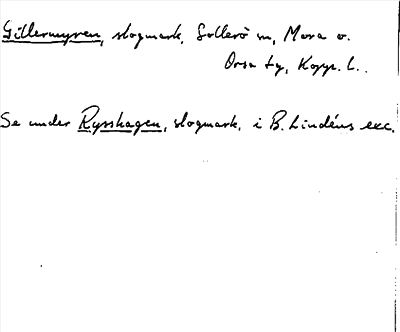 Gillermyren, slogmark, Sollerö sn, Mora o.
Orsa tg, Kopp. l..
Se under Rysshagen, slogmark, i B. Lindéns exc.